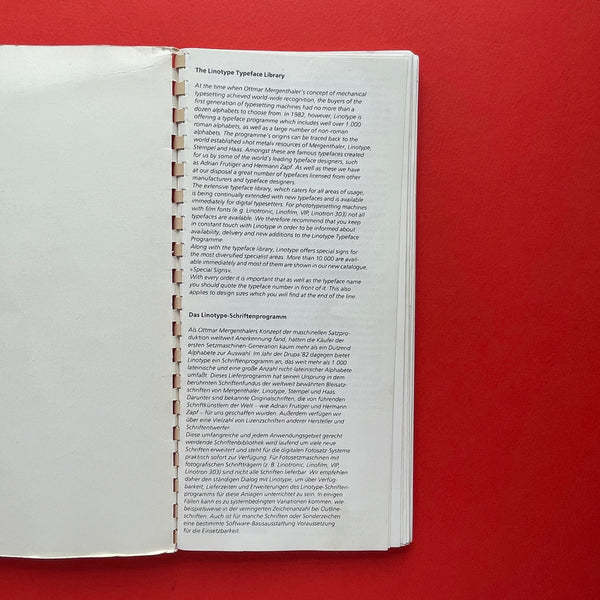 The Linotype Typeface Library
At the time when Ottmar Mergenthaler's concept of mechanical
typesetting achieved world-wide recognition, the buyers of the
first generation of typesetting machines had no more than a
dozen alphabets to choose from. In 1982, however, Linotype is
offering a typeface programme which includes well over 1.000
roman alphabets, as well as a large number of non-roman
alphabets. The programme's origins can be traced back to the
world established »hot metal« resources of Mergenthaler, Linotype,
Stempel and Haas. Amongst these are famous typefaces created
for us by some of the world's leading typeface designers, such
as Adrian Frutiger and Hermann Zapf. As well as these we have
at our disposal a great number of typefaces licensed from other
manufacturers and typeface designers.
The extensive typeface library, which caters for all areas of usage,
is being continually extended with new typefaces and is available
immediately for digital typesetters. For phototypesetting machines
with film fonts (e.g. Linotronic, Linofilm, VIP, Linotron 303) not all
typefaces are available. We therefore recommend that you keep
in constant touch with Linotype in order to be informed about
availability, delivery and new additions to the Linotype Typeface
Programme.
Along with the typeface library, Linotype offers special signs for
the most diversified specialist areas. More than 10.000 are avail-
able immediately and most of them are shown in our new catalogue,
»Special Signs«.
With every order it is important that as well as the typeface name
you should quote the typeface number in front of it. This also
applies to design sizes which you will find at the end of the line.
Das Linotype-Schriftenprogramm
Als Ottmar Mergenthalers Konzept der maschinellen Satzpro-
duktion weltweit Anerkennung fand, hatten die Käufer der
ersten Setzmaschinen-Generation kaum mehr als ein Dutzend
Alphabete zur Auswahl. Im Jahr der Drupa '82 dagegen bietet
Linotype ein Schriftenprogramm an, das weit mehr als 1.000
lateinische und eine große Anzahl nicht-lateinischer Alphabete
umfaßt. Dieses Lieferprogramm hat seinen Ursprung in dem
berühmten Schriftenfundus der weltweit bewährten Bleisatz-
schriften von Mergenthaler, Linotype, Stempel und Haas.
Darunter sind bekannte Originalschriften, die von führenden
Schriftkünstlern der Welt – wie Adrian Frutiger und Hermann
Zapf – für uns geschaffen wurden. Außerdem verfügen wir
über eine Vielzahl von Lizenzschriften anderer Hersteller und
Schriftentwerfer.
Diese umfangreiche und jedem Anwendungsgebiet gerecht
werdende Schriftenbibliothek wird laufend um viele neue
Schriften erweitert und steht für die digitalen Fotosatz-Systeme
praktisch sofort zur Verfügung. Für Fotosetzmaschinen mit
fotografischen Schriftträgern (z. B. Linotronic, Linofilm, VIP,
Linotron 303) sind nicht alle Schriften lieferbar. Wir empfehlen
daher den ständigen Dialog mit Linotype, um über Verfüg-
barkeit, Lieferzeiten und Erweiterungen des Linotype-Schriften-
programms für diese Anlagen unterrichtet zu sein. In einigen
Fällen kann es zu systembedingten Variationen kommen, wie
beispielsweise in der verringerten Zeichenanzahl bei Outline-
schriften. Auch ist für manche Schriften oder Sonderzeichen
eine bestimmte Software-Basisausstattung Voraussetzung
für die Einsetzbarkeit.